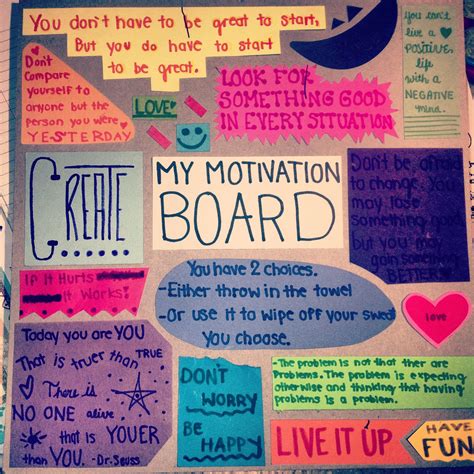 You don't have to be great to start,
But you do have to start
to be great.
You can't
live a
POSITIVE
life
with a
NEGATIVE
mind.
Don't
Compare
yourself to
anyone but the
person you were
YESTERDAY
LOVE
LOOK FOR
SOMETHING GOOD
IN EVERY SITUATION
CREATE
MY MOTIVATION
BOARD
Don't be afraid
to change. You
may lose
something good
but you may
gain something
BETTER!
If It Hurts
It Works!
You have 2 choices.
-Either throw in the towel
-Or use it to wipe off your sweat
You choose.
love
Today you are YOU
That is truer than TRUE
There is
NO ONE alive
that is YOUER
than YOU. -Dr. Seuss
DON'T
WORRY
BE
HAPPY
-The problem is not that ther are
Problems. The problem is expecting
otherwise and thinking that having
problems is a problem.
LIVE IT UP
HAVE
FUN